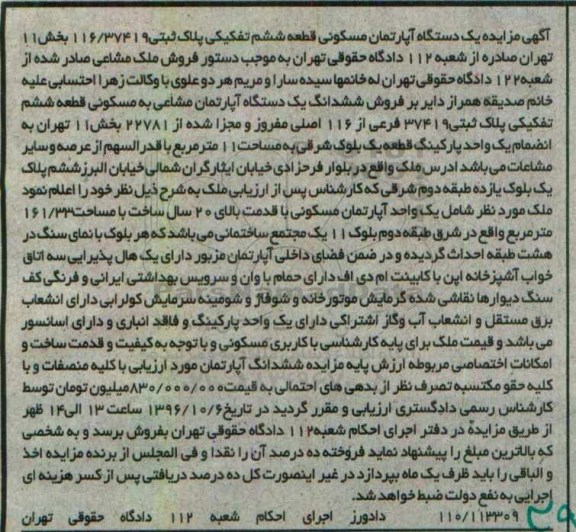 آگهی مزایده یک دستگاه آپارتمان مسکونی قطعه ششم تفکیکی پلاک ثبتی ۱۱۶/۳۷۴۱۹ بخش۱۱
تهران صادره از شعبه ۱۱۲ دادگاه حقوقی تهران به موجب دستور فروش ملک مشاعی صادر شده از
شعبه۱۲۲ دادگاه حقوقی تهران له خانمها سیده سارا و مریم هر دو علوی با وکالت زهرا احتسابی علیه
خانم صدیقه همراز دایر بر فروش ششدانگ یک دستگاه آپارتمان مشاعی به مسکونی قطعه ششم
تفکیکی پلاک ثبتی۳۷۴۱۹ فرعی از ۱۱۶ اصلی مفروز و مجزا شده از ۲۲۷۸۱ بخش۱۱ تهران به
انضمام یک واحد پارکینگ قطعه یک بلوک شرقی به مساحت۱۱ مترمربع با قدرالسهم از عرصه و سایر
مشاعات می باشد ادرس ملک واقع در بلوار فرحزادی خیابان ایثارگران شمالی خیابان البرز ششم پلاک
یک بلوک یازده طبقه دوم شرقی که کارشناس پس از ارزیابی ملک به شرح ذیل نظر خود را اعلام نمود
ملک مورد نظر شامل یک واحد آپارتمان مسکونی با قدمت بالای ۲۰ سال ساخت با مساحت۱۶۱/۳۳
متر مربع واقع در شرق طبقه دوم بلوک ۱۱ یک مجتمع ساختمانی می باشد که هر بلوک با نمای سنگ در
هشت طبقه احداث گردیده و در ضمن فضای داخلی آپارتمان مزبور دارای یک هال پذیرایی سه اتاق
خواب آشپزخانه اپن با کابینت ام دی اف دارای حمام با وان و سرویس بهداشتی ایرانی و فرنگی کف
سنگ دیوارها نقاشی شده گرمایش موتورخانه و شوفاژ و شومینه سرمایش کولر ابی دارای انشعاب
برق مستقل و انشعاب آب وگاز اشتراکی دارای یک واحد پارکینگ و فاقد انباری و دارای اسانسور
می باشد و قیمت ملک برای پایه کارشناسی با کاربری مسکونی و با توجه به کیفیت و قدمت ساخت و
امکانات اختصاصی مربوطه ارزش پایه مزایده ششدانگ آپارتمان مورد ارزیابی با کلیه منصفات و با
کلیه حقو مکتسبه تصرف نظر از بدهی های احتمالی به قیمت۸۳۰/۰۰۰/۰۰۰میلیون تومان توسط
کارشناس رسمی دادگستری ارزیابی و مقرر گردید در تاریخ۱۳۹۶/۱۰/۶ ساعت ۱۳ الی۱۴ ظهر
از طریق مزایده در دفتر اجرای احکام شعبه۱۱۲ دادگاه حقوقی تهران بفروش برسد و به شخصی
که بالاترین مبلغ را پیشنهاد نماید فروخته ده درصد آن را نقدا و فی المجلس از برنده مزایده اخذ
و الباقی را باید ظرف یک ماه بپردازد در غیر اینصورت کل ده درصد دریافتی پس از کسر هزینه ای
اجرایی به نفع دولت ضبط خواهد شد.
۱۱۰/۱۱۳۳۰۹ دادورز اجرای احکام شعبه ۱۱۲ دادگاه حقوقی تهران
۲۹